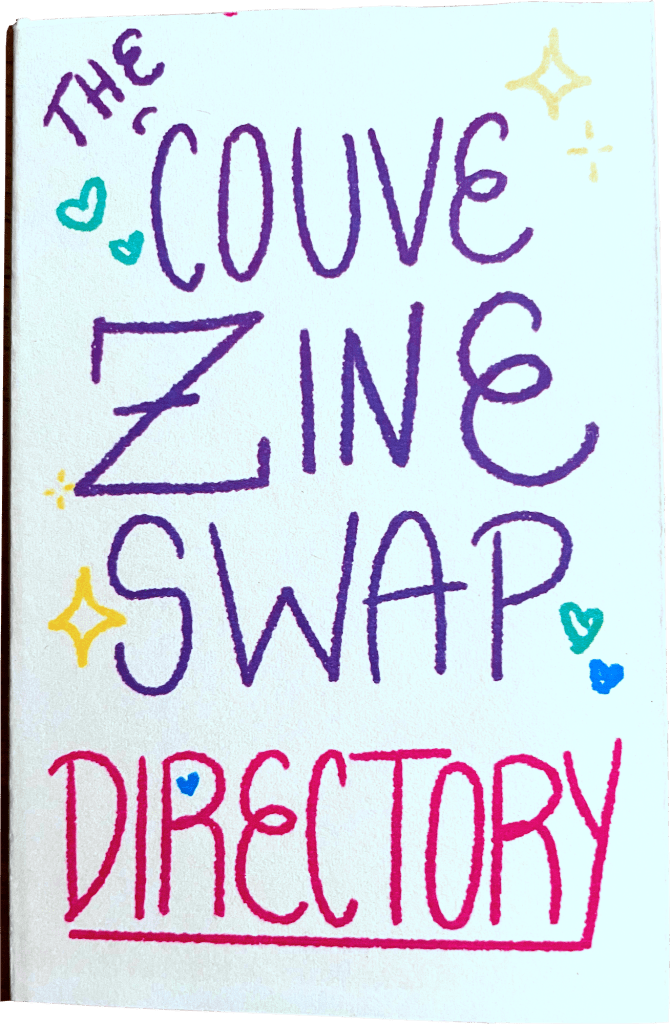 THE
COUVE
ZINE
SWAP
DIRECTORY